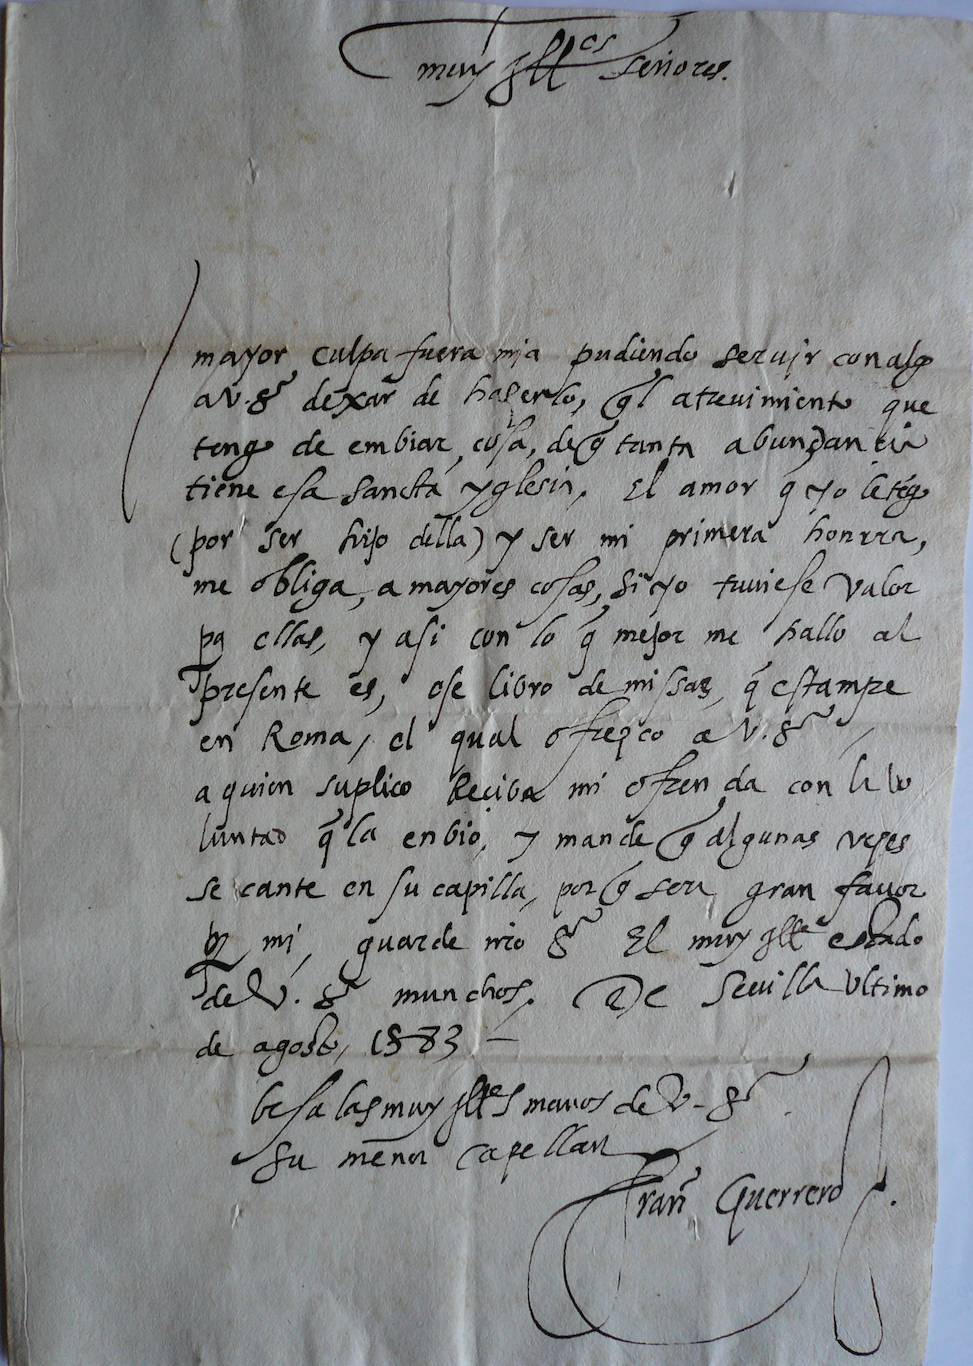 muy Illes señores.
mayor culpa fuera mia pudiendo seruir con algo
a V. Sª dexar de haperlo, q̃l atreuimiento que
tengo de embiar, cosa, de q̃ tanta abundancia
tiene esa sancta yglesia, El amor q̃ yo le tẽgo
(por ser hijo della) y ser mi primera honrra,
me obliga, a mayores cosas, si yo tuuiese valor
pª ellas, y asi con lo q̃ mejor me hallo al
presente es, ese libro de missas, q̃ estampe
en Roma, el qual ofrezco a V. Sª
a quien suplico Reciba mi ofrenda con la vo
luntad q̃ la enbio, y mande q̃ algunas vezes
se cante en su capilla, porq̃ sera gran fauor
pª mi, guarde nr̃o Sʳ El muy Ille estado
de V. Sª munchos. De Seuilla Vltimo
de agosto, 1583
besa las muy Illes manos de V. Sª
su menor capellan
Franº Guerrero.